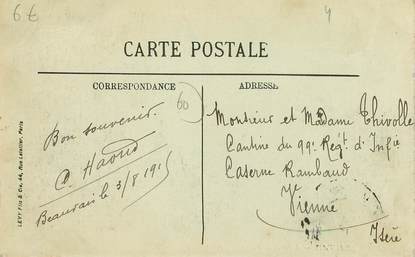 6 €
4
CARTE POSTALE
CORRESPONDANCE
ADRESSE
60
Bon souvenir.
Beauvais le 3/8 191
Monsieur et Madame Thivolle
Cantine du 99e Régt d'Infie
Caserne Rambaud
Vienne
Isère
LEVY Fils & Cie, 44, Rue Letellier, Paris